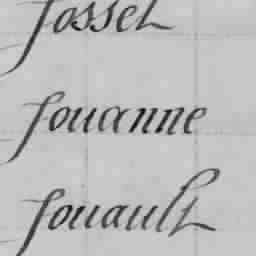 Fosset
Fouanne
Fouault